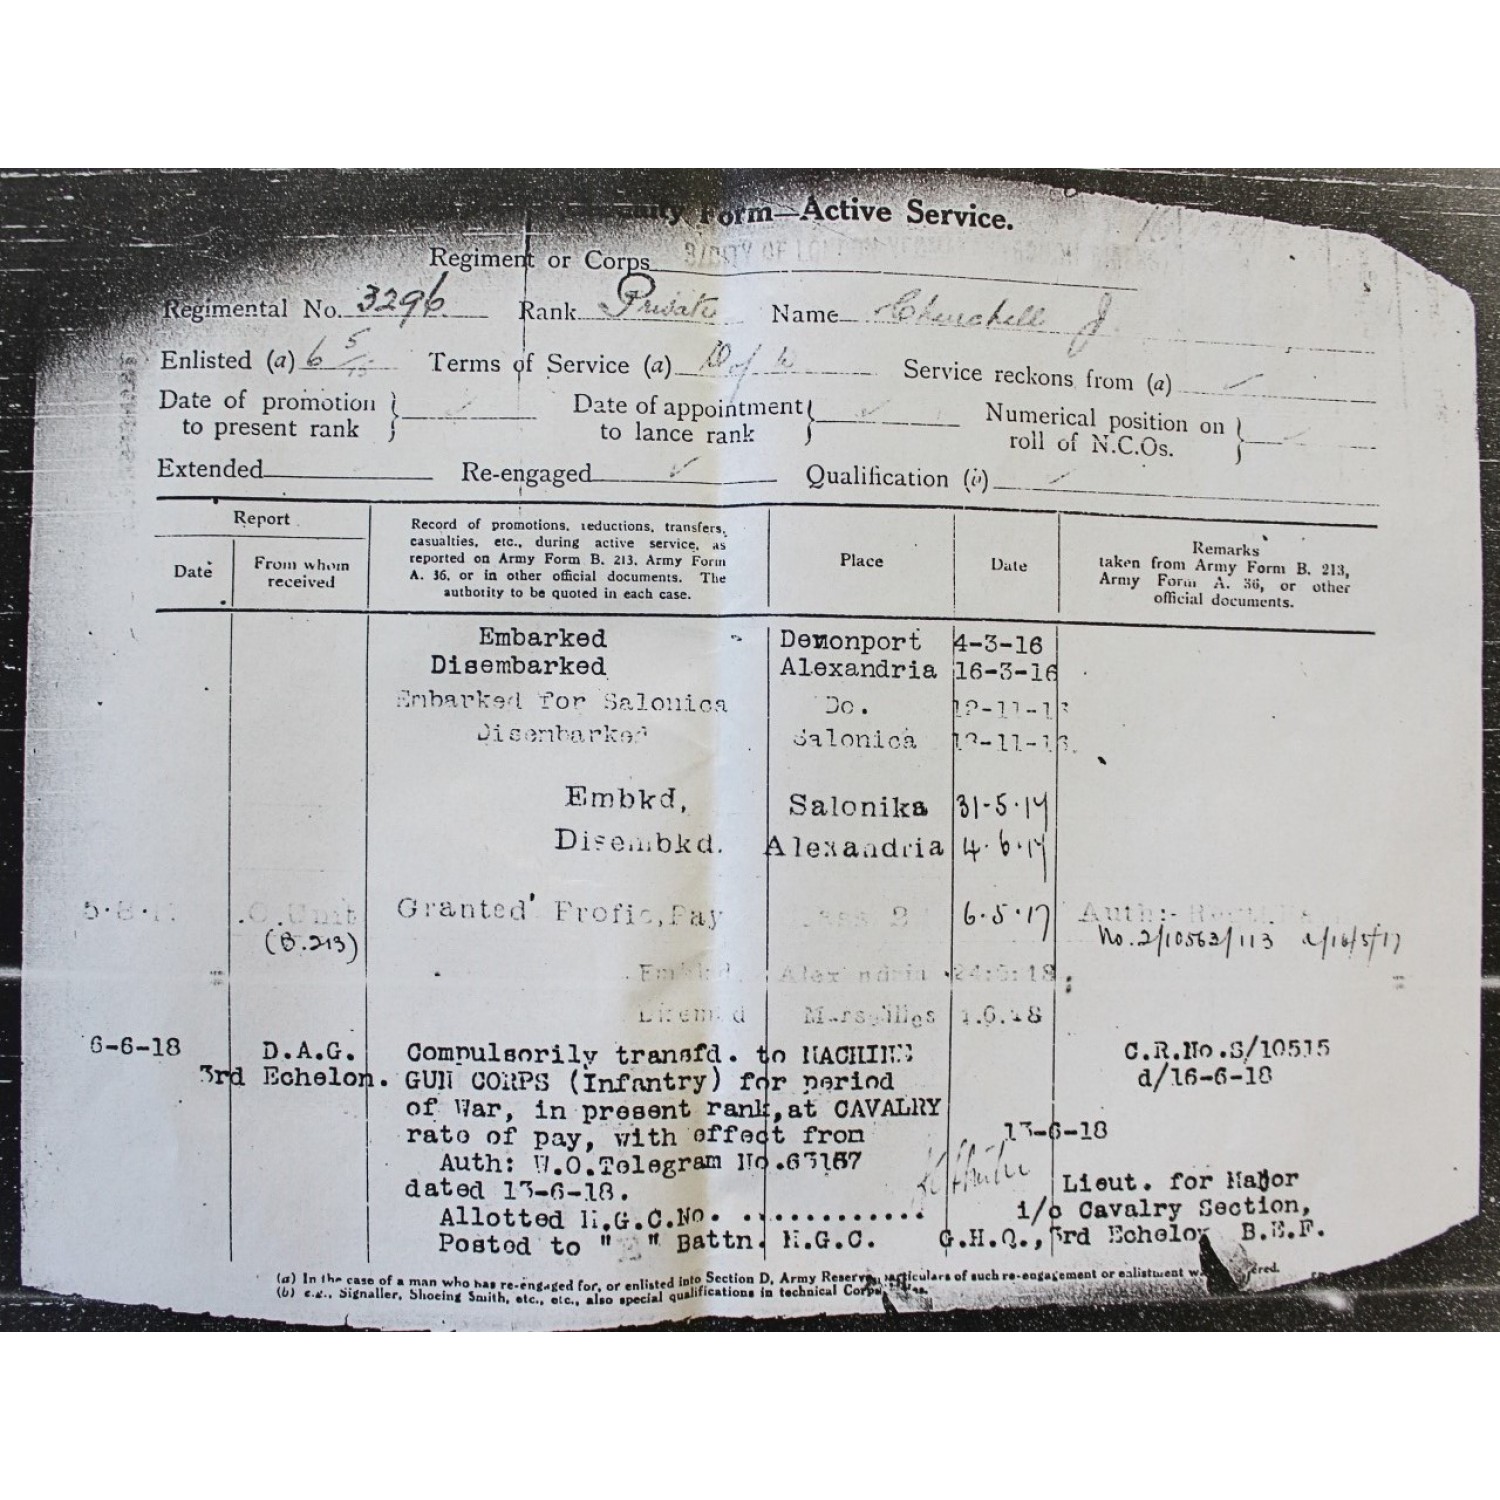 Form—Active Service.
Regiment or Corps
Regimental No. 3296 Rank Private Name Churchill J
Enlisted (a) 6 5/15 Terms of Service (a) Service reckons from (a) ✓
Date of promotion to present rank } ✓ Date of appointment to lance rank } ✓ Numerical position on roll of N.C.Os. } ✓
Extended Re-engaged ✓ Qualification (b) ✓
Report
Date
From whom received
Record of promotions, reductions, transfers,
casualties, etc., during active service, as
reported on Army Form B. 213, Army Form
A. 36, or in other official documents. The
authority to be quoted in each case.
Place
Date
Remarks
taken from Army Form B. 213,
Army Form A. 36, or other
official documents.
Embarked Demonport 4-3-16
Disembarked Alexandria 16-3-16
Embarked for Salonica Do.
Disembarked Salonica
Embkd, Salonika 31-5-17
Disembkd. Alexandria 4-6-17
Granted Profic, Pay 6-5-17 Auth:-
(B.213) No. 2/10563/113 d/16/5/17
Embkd, Alexandria 24:5:18
Disembd Marseilles 1.6.18
6-6-18 D.A.G. Compulsorily transfd. to MACHINE C.R.No.S/10515
3rd Echelon. GUN CORPS (Infantry) for period d/16-6-18
of War, in present rank, at CAVALRY
rate of pay, with effect from 13-6-18
Auth: W.O.Telegram No.63167
dated 13-6-18. Lieut. for Major
Allotted M.G.C.No. ............ i/c Cavalry Section,
Posted to " " Battn. M.G.C. G.H.Q., 3rd Echelon B.E.F.
(a) In the case of a man who has re-engaged for, or enlisted into Section D, Army Reserve, particulars of such re-engagement or enlistment
(b) e.g., Signaller, Shoeing Smith, etc., etc., also special qualifications in technical Corps